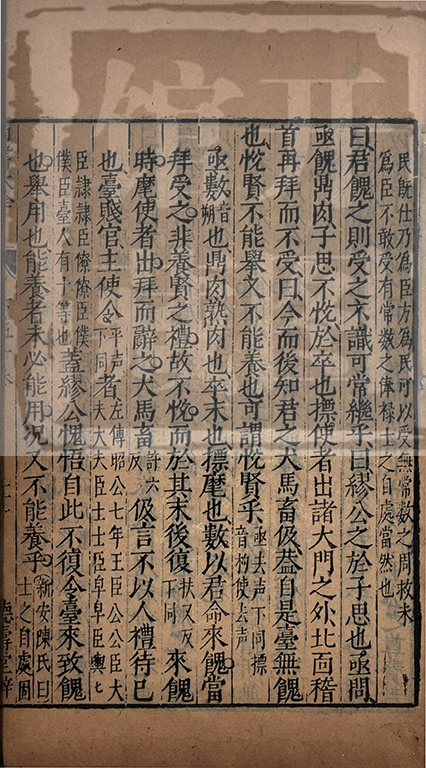 民既仕乃為臣方為民可以受無常数之周救未
為臣不敢受有常数之俸禄士之自處當然也
曰君餽之則受之不識可常繼乎曰繆公之於子思也亟問
亟餽鼎肉子思不悅於卒也摽使者出諸大門之外北面稽
首再拜而不受曰今而後知君之犬馬畜伋蓋自是臺無餽
也悅賢不能舉又不能養也可謂悅賢乎
亟去声下同摽
音杓使去声
亟數
音
朔
也鼎肉熟肉也卒末也摽麾也數以君命來餽當
拜受之非養賢之禮故不悅而於其末後復
扶又反
下同
來餽
時麾使者出拜而辭之犬馬畜
許六
反
伋言不以人禮待己
也臺賤官主使令
平声
下同
者
左傳昭公七年王臣公公臣大
夫大夫臣士士臣皁皁臣輿
臣隷隷臣僚僚臣僕
僕臣臺人有十等也
蓋繆公愧悟自此不復令臺來致餽
也舉用也能養者未必能用况又不能養乎
新安陳氏曰
士之自處固
德壽堂梓